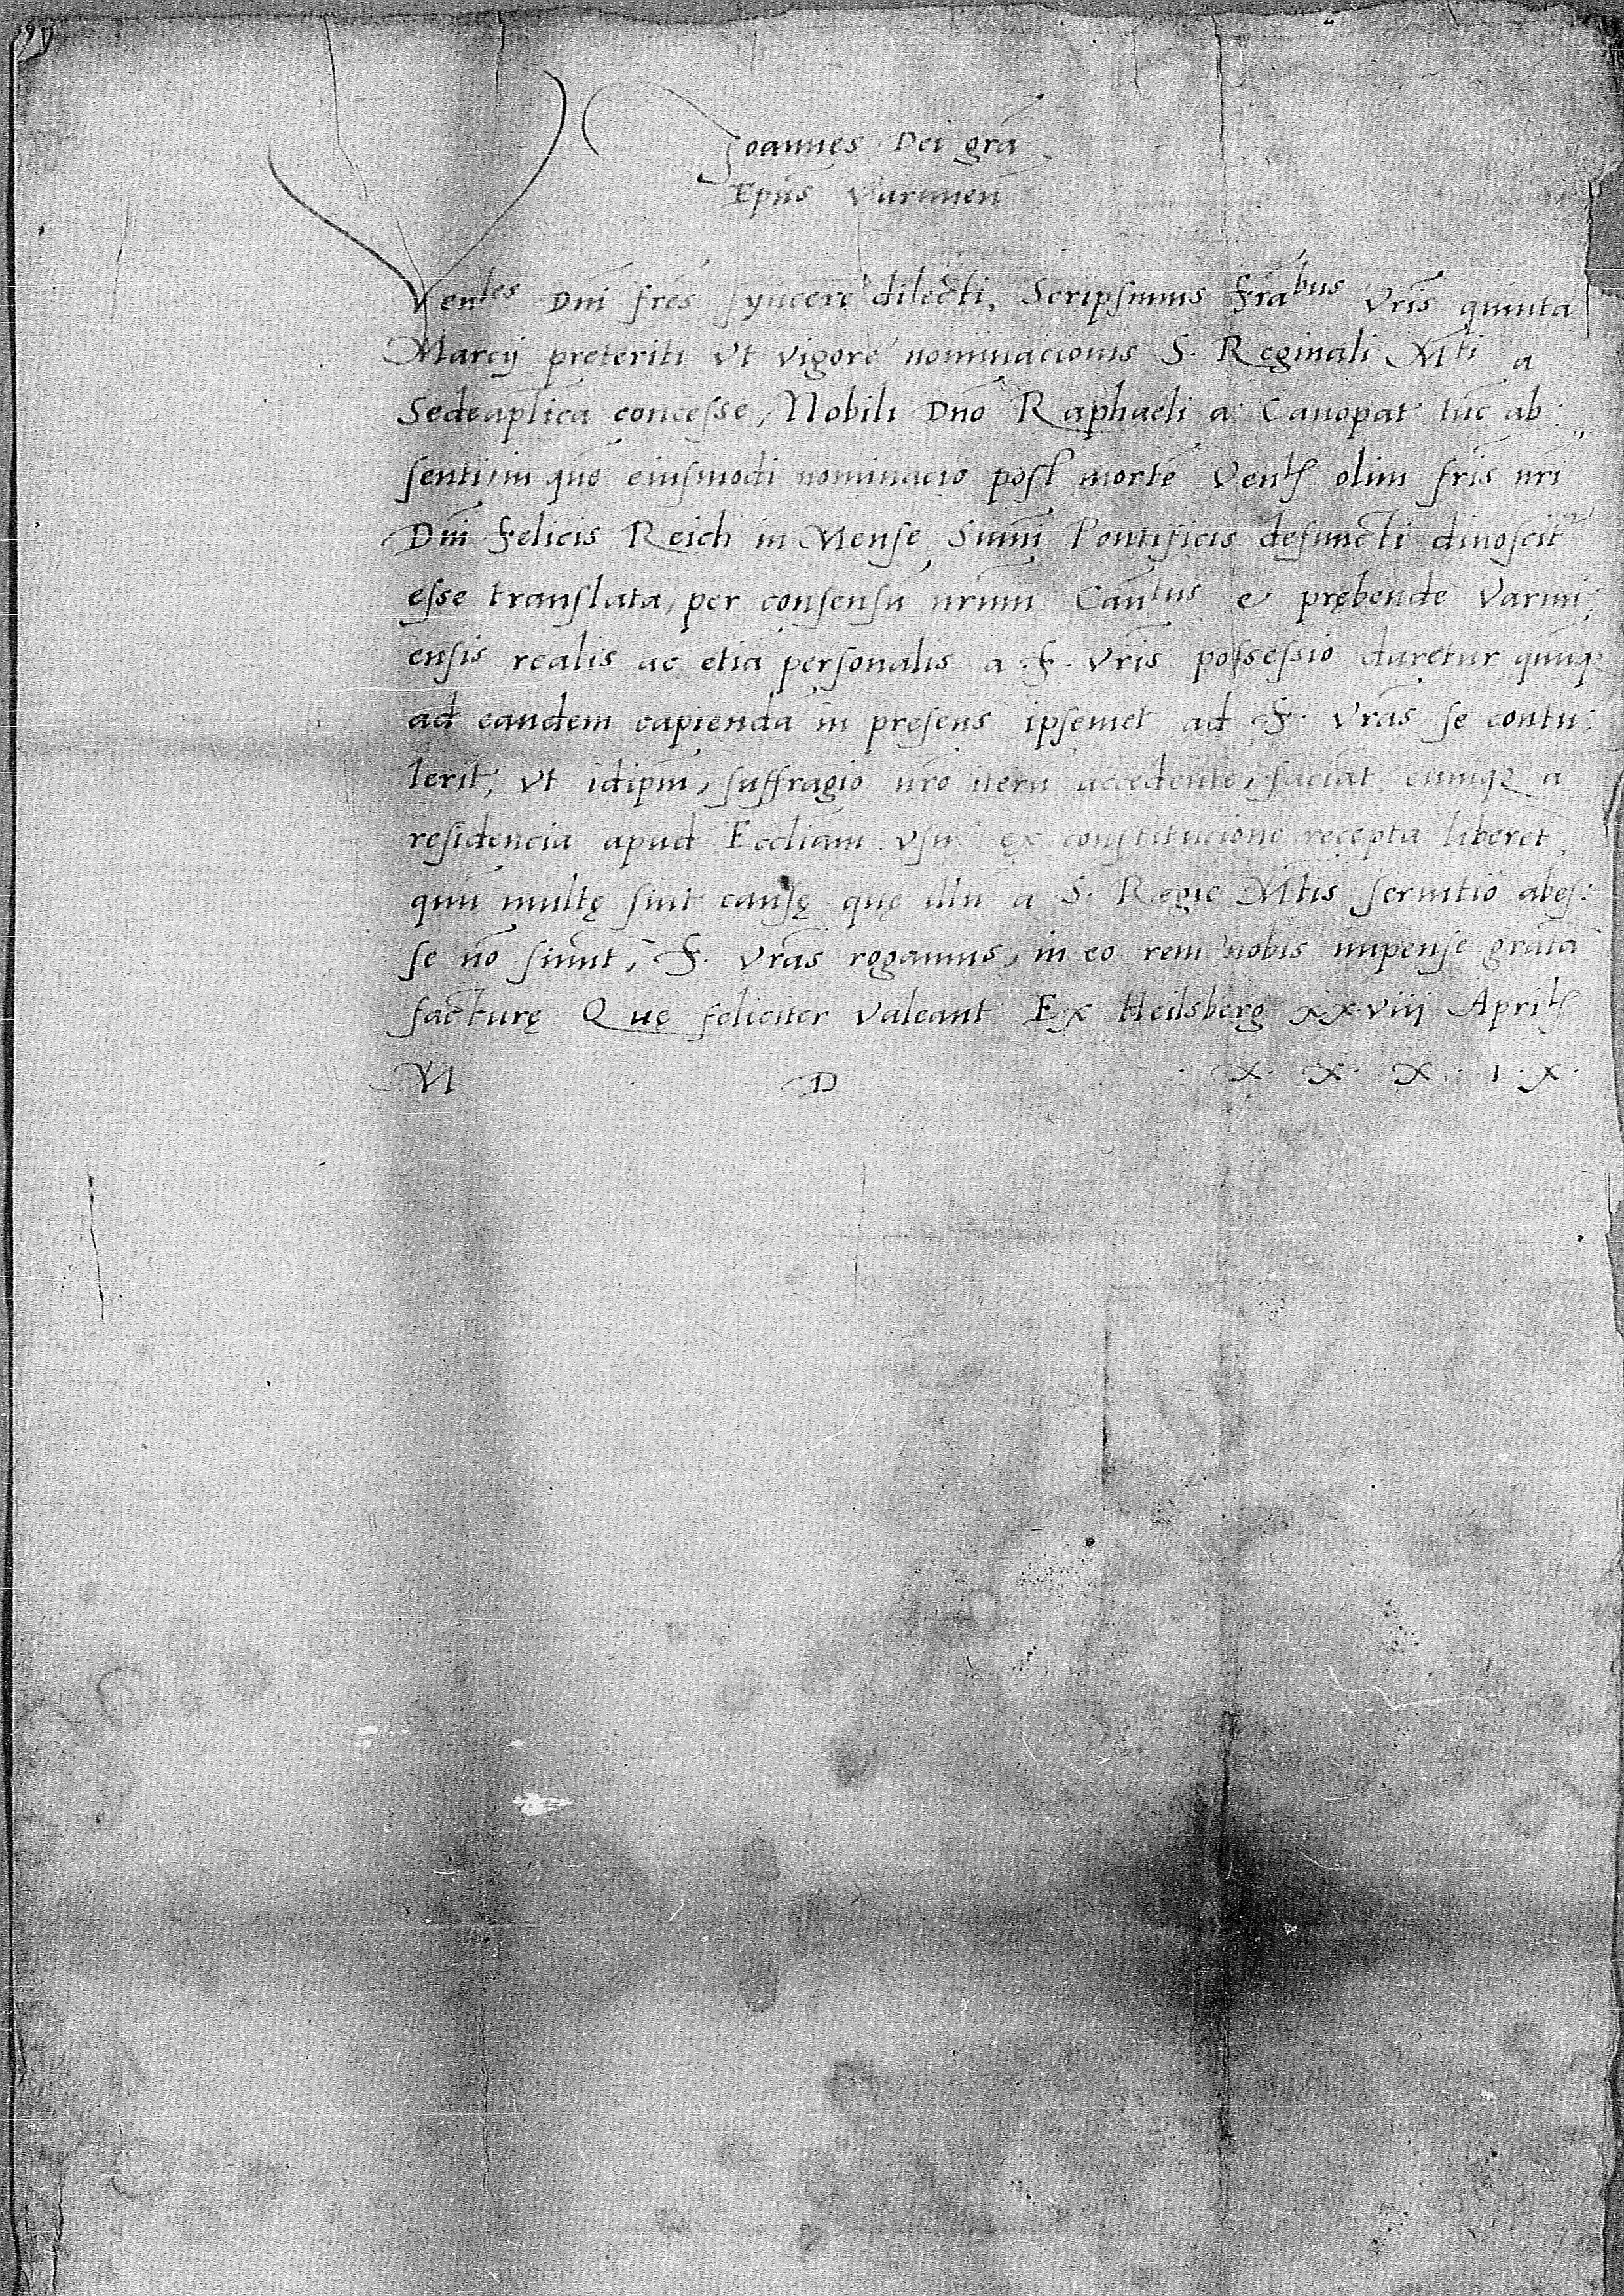 Joannes Dei gr̄a
Ep̄us Varmien̄
Ven<sup>les</sup> Dn̄i fr̄es syncerę dilecti. Scripsimus Fr̄a<sup>bus</sup> Vr̄is quinta
Marcij preteriti vt vigore nominacionis S. Reginali M<sup>ti</sup> a
Sede ap̄lica concesse, Nobili Dn̄o Raphaeli a Canopat tūc ab:
senti, in quē eiusmodi nominacio post mortē Ven<sup>lis</sup> olim fr̄is nr̄i
Dn̄i Felicis Reich in Mense Sum̄i Pontificis defuncti dinoscit<sup>r</sup>
esse translata, per consensū nr̄um Can<sup>tus</sup> et prębende Varmi:
ensis realis ac etiā personalis a F. Vr̄is possessio daretur, quūq<sup>ꝫ</sup>
ad eandem capiendā in presens ipsemet ad F. Vr̄as se contu:
lerit, vt idip̄m, suffragio nr̄o iterū accedente, faciat, eumqꝫ a
residencia apud Eccl̄iam vsu ex constitucione recepta liberet,
quū multę sint causę quę illū a S. Regie M̄tis seruitio abes:
se nō sinūt, F. Vr̄as rogamus, in eo rem nobis impense gratā
facturę Quę feliciter valeant Ex Heilsberg xxviij Aprilis
M D X X X I X